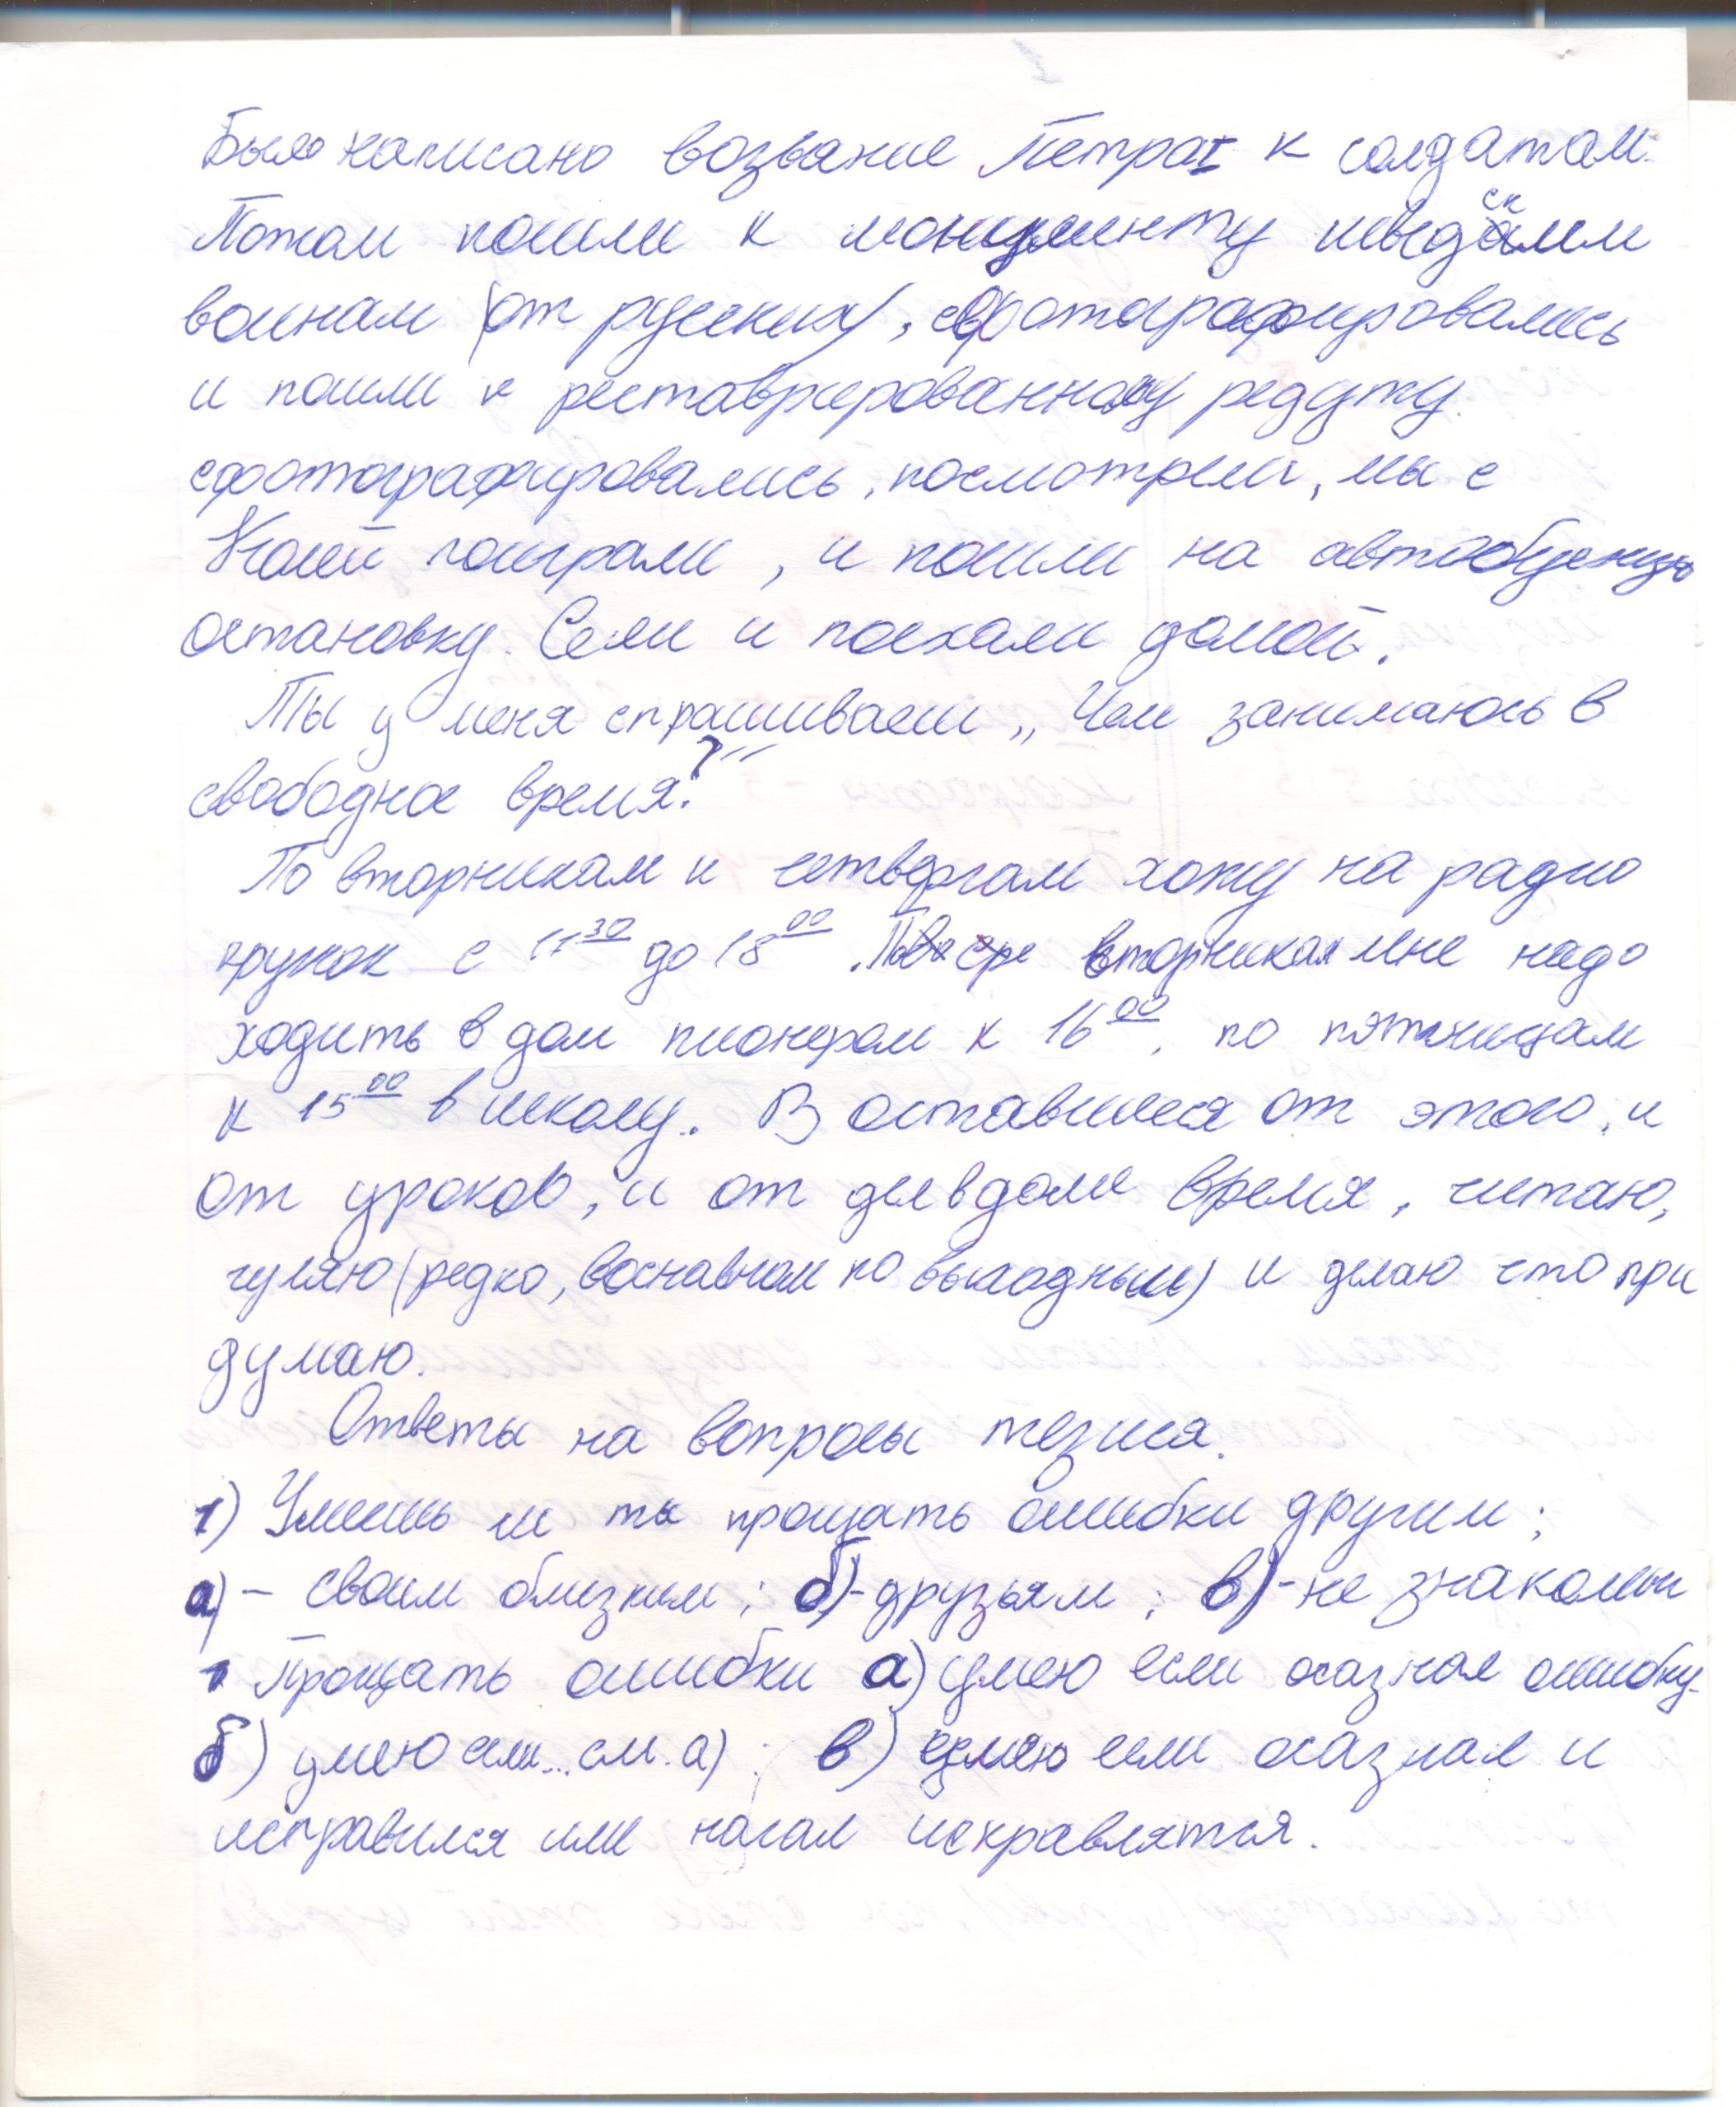 Было написано возвание Петра I к солдатам.
Потом пошли к монументу шведским
воинам (от русских), сфотографировались
и пошли к реставрированному редуту.
сфотографировались, посмотрели, мы с
Колей поиграли, и пошли на автобусную
остановку. Сели и поехали домой.
Ты у меня спрашиваеш „Чем занимаюсь в
свободное время?"
По вторникам и четвергам хожу на радио
кружок с 17 30 до 18 00. вторникам мне надо
ходить в дом пионерам к 16 00, по пятницам
к 15 00 в школу. В оставшиеся от этого, и
от уроков, и от дел в доме время, читаю,
гуляю (редко, воснавном по выходным) и делаю что при
думаю.
Ответы на вопросы тезиса.
1) Умеешь ли ты прощать ошибки другим;
а) – своим близким; б) - друзьям; в) - не знакомым
1 Прощать ошибки а) умею если осазнал ошибку.
б) умею если... см. а); в) умею если осазнал и
исправился или начал исправлятся.